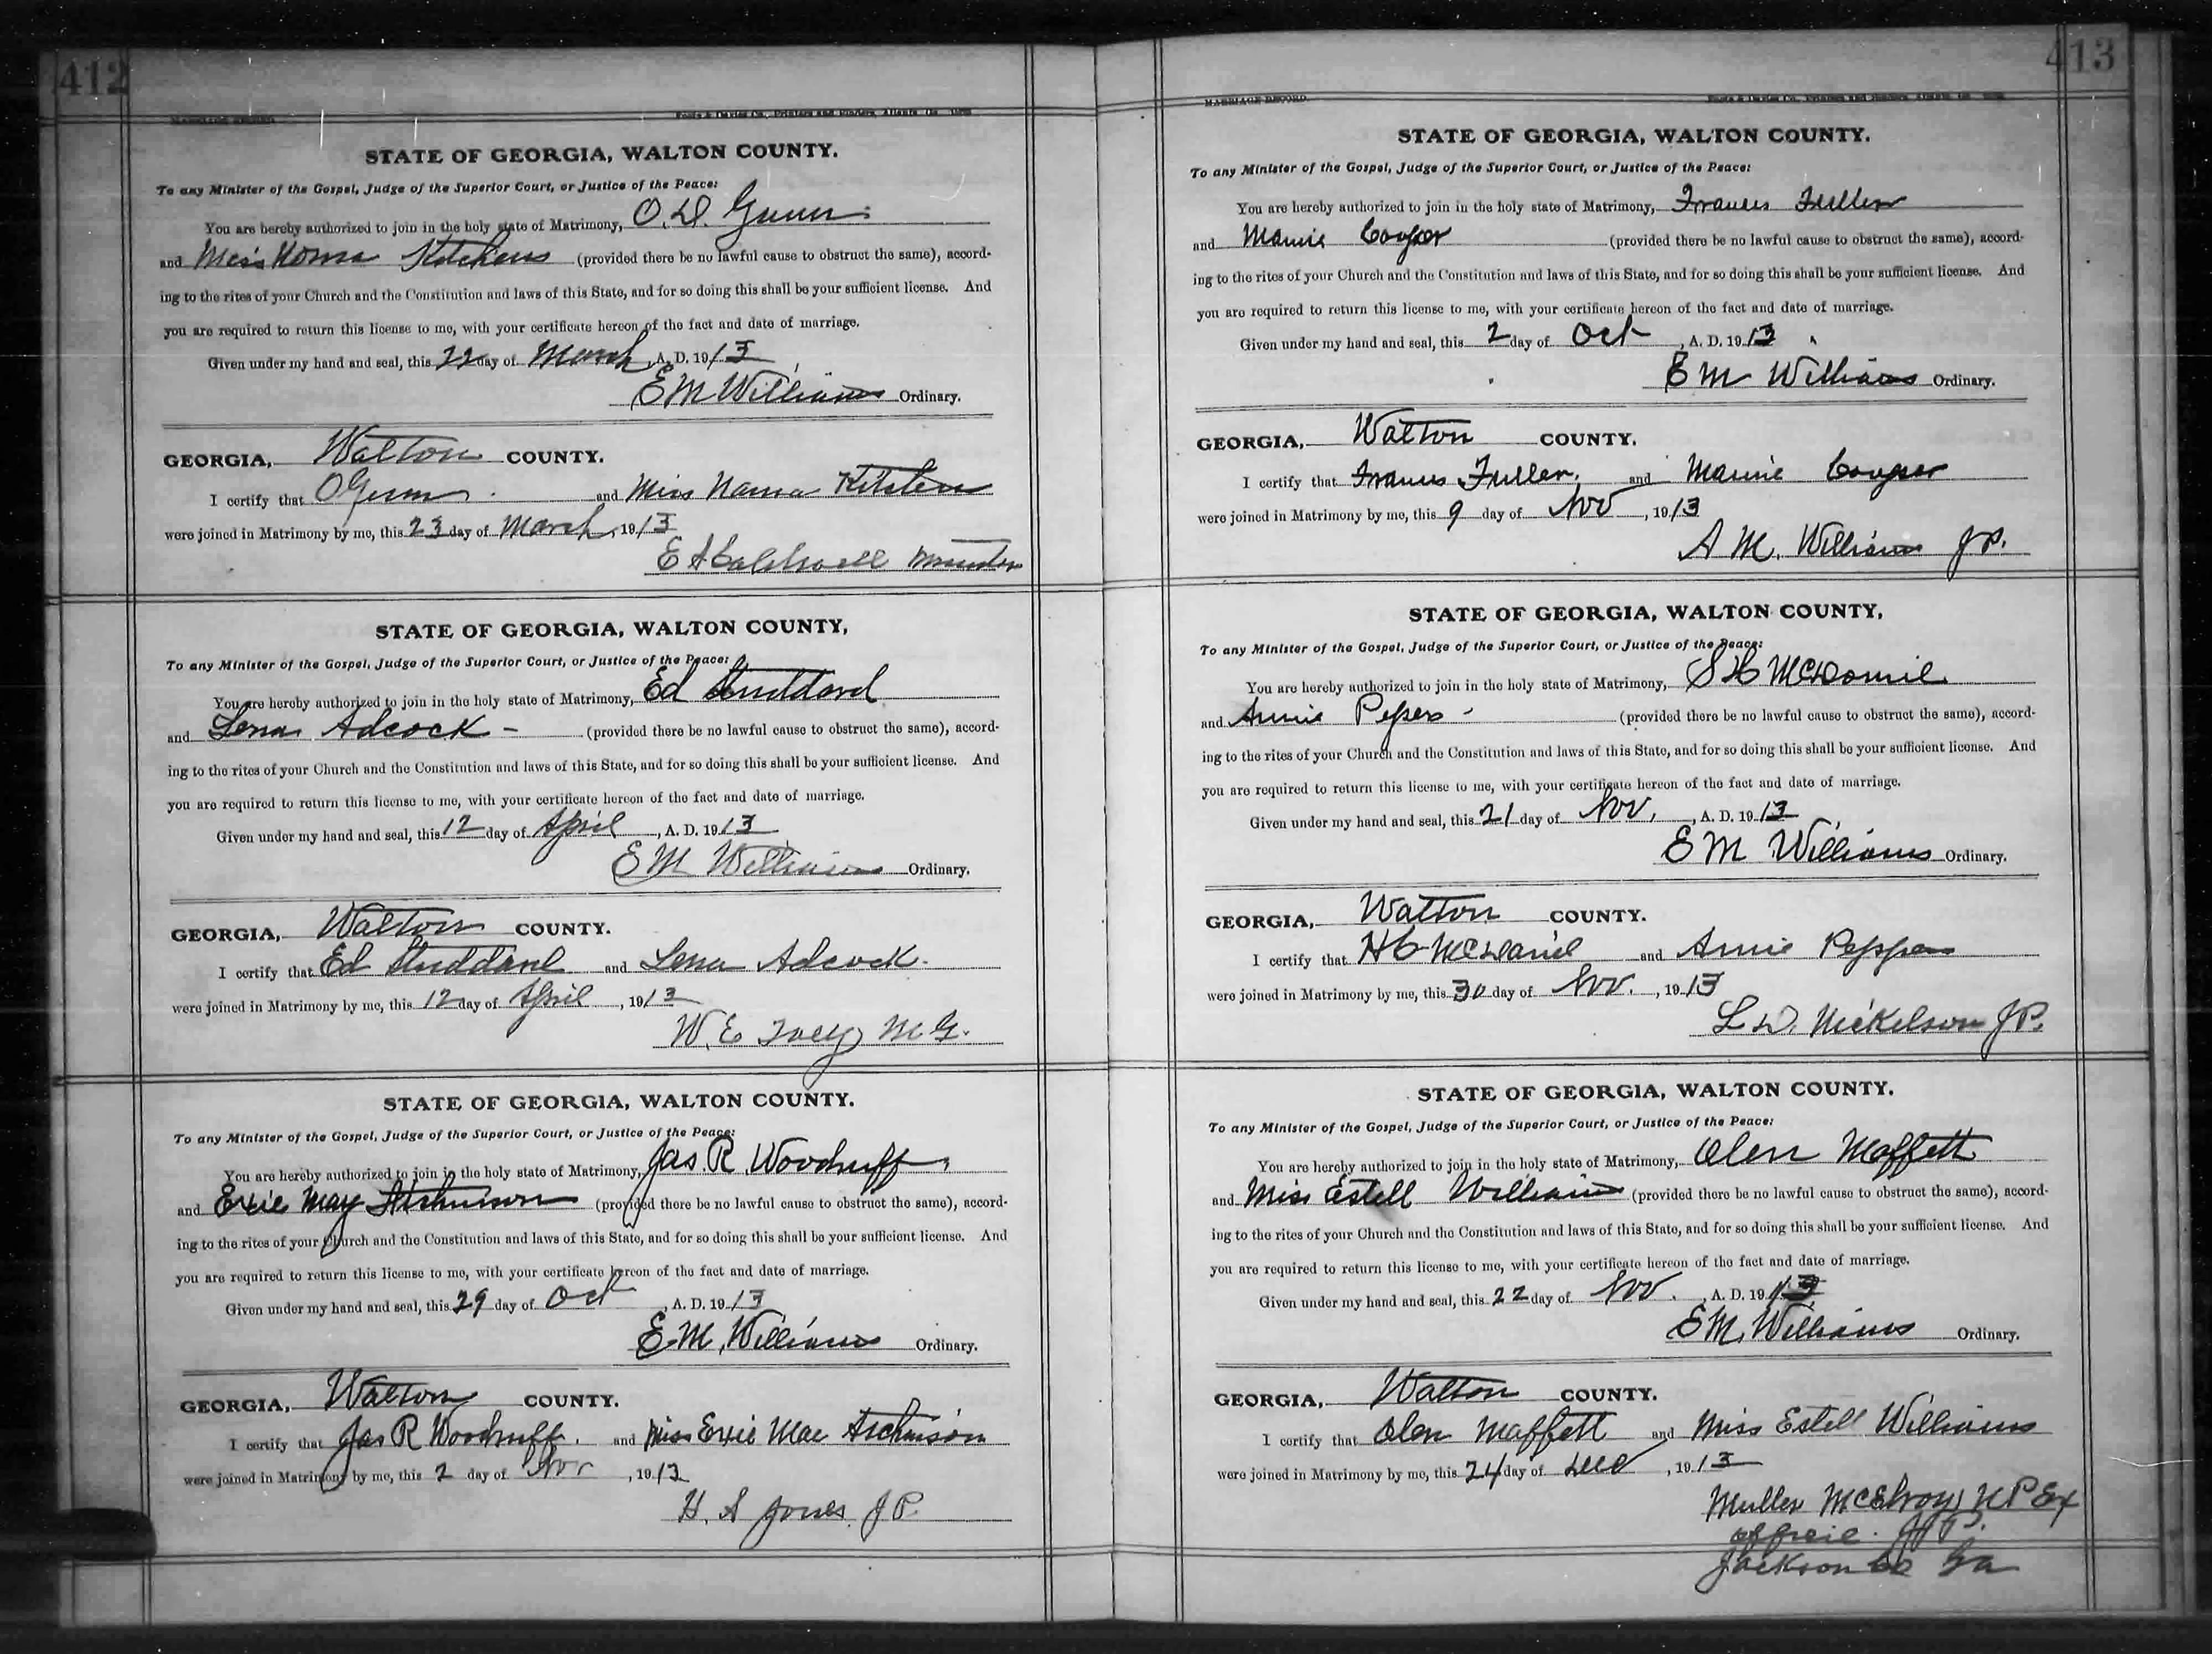 412
MARRIAGE RECORD.
Foote & Davies Co., Printers and Binders, Atlanta, Ga.
STATE OF GEORGIA, WALTON COUNTY.
To any Minister of the Gospel, Judge of the Superior Court, or Justice of the Peace:
You are hereby authorized to join in the holy state of Matrimony, O.D. Gunn
and Miss Noma Kitchens (provided there be no lawful cause to obstruct the same), accord-
ing to the rites of your Church and the Constitution and laws of this State, and for so doing this shall be your sufficient license. And
you are required to return this license to me, with your certificate hereon of the fact and date of marriage.
Given under my hand and seal, this 22 day of March, A. D. 1913
E M Williams Ordinary.
GEORGIA, Walton COUNTY.
I certify that O Gunn and Miss Nama Kitchens
were joined in Matrimony by me, this 23 day of March, 1913
E A Caldwell Minister
STATE OF GEORGIA, WALTON COUNTY,
To any Minister of the Gospel, Judge of the Superior Court, or Justice of the Peace:
You are hereby authorized to join in the holy state of Matrimony, Ed Studdard
and Lena Adcock - (provided there be no lawful cause to obstruct the same), accord-
ing to the rites of your Church and the Constitution and laws of this State, and for so doing this shall be your sufficient license. And
you are required to return this license to me, with your certificate hereon of the fact and date of marriage.
Given under my hand and seal, this 12 day of April, A. D. 1913
E M Williams Ordinary.
GEORGIA, Walton COUNTY.
I certify that Ed Studdard and Lena Adcock.
were joined in Matrimony by me, this 12 day of April, 1913
W. E Ivey M G.
STATE OF GEORGIA, WALTON COUNTY.
To any Minister of the Gospel, Judge of the Superior Court, or Justice of the Peace:
You are hereby authorized to join in the holy state of Matrimony, Jas. R Woodruff
and Exie May Atchinson (provided there be no lawful cause to obstruct the same), accord-
ing to the rites of your Church and the Constitution and laws of this State, and for so doing this shall be your sufficient license. And
you are required to return this license to me, with your certificate hereon of the fact and date of marriage.
Given under my hand and seal, this 29 day of Oct, A. D. 1913
E. M. Williams Ordinary.
GEORGIA, Walton COUNTY.
I certify that Jas R Woodruff. and Miss Exie Mae Atchinson
were joined in Matrimony by me, this 2 day of Nov, 1913
H. A Jones J P.
413
MARRIAGE RECORD.
Foote & Davies Co., Printers and Binders, Atlanta, Ga.
STATE OF GEORGIA, WALTON COUNTY.
To any Minister of the Gospel, Judge of the Superior Court, or Justice of the Peace:
You are hereby authorized to join in the holy state of Matrimony, Frances Fuller
and Mamie Cooper (provided there be no lawful cause to obstruct the same), accord-
ing to the rites of your Church and the Constitution and laws of this State, and for so doing this shall be your sufficient license. And
you are required to return this license to me, with your certificate hereon of the fact and date of marriage.
Given under my hand and seal, this 2 day of Oct, A. D. 1913
E M Williams Ordinary.
GEORGIA, Walton COUNTY.
I certify that Frances Fuller. and Mamie Cooper
were joined in Matrimony by me, this 9 day of Nov, 1913
A M. Williams JP.
STATE OF GEORGIA, WALTON COUNTY,
To any Minister of the Gospel, Judge of the Superior Court, or Justice of the Peace:
You are hereby authorized to join in the holy state of Matrimony, McDaniel
and Annie Pepers - (provided there be no lawful cause to obstruct the same), accord-
ing to the rites of your Church and the Constitution and laws of this State, and for so doing this shall be your sufficient license. And
you are required to return this license to me, with your certificate hereon of the fact and date of marriage.
Given under my hand and seal, this 21 day of Nov, A. D. 1913
E M Williams Ordinary.
GEORGIA, Walton COUNTY.
I certify that H C McDaniel and Annie Peppers
were joined in Matrimony by me, this 30 day of Nov., 1913
L D. Nickelson JP.
STATE OF GEORGIA, WALTON COUNTY.
To any Minister of the Gospel, Judge of the Superior Court, or Justice of the Peace:
You are hereby authorized to join in the holy state of Matrimony, Olen Moffett
and Miss Estell Williams (provided there be no lawful cause to obstruct the same), accord-
ing to the rites of your Church and the Constitution and laws of this State, and for so doing this shall be your sufficient license. And
you are required to return this license to me, with your certificate hereon of the fact and date of marriage.
Given under my hand and seal, this 22 day of Nov., A. D. 1913
E M. Williams Ordinary.
GEORGIA, Walton COUNTY.
I certify that Olen Maffett and Miss Estell Williams
were joined in Matrimony by me, this 24 day of Dec, 1913
McElroy N P Ex
officie. J P.
Jackson Co Ga